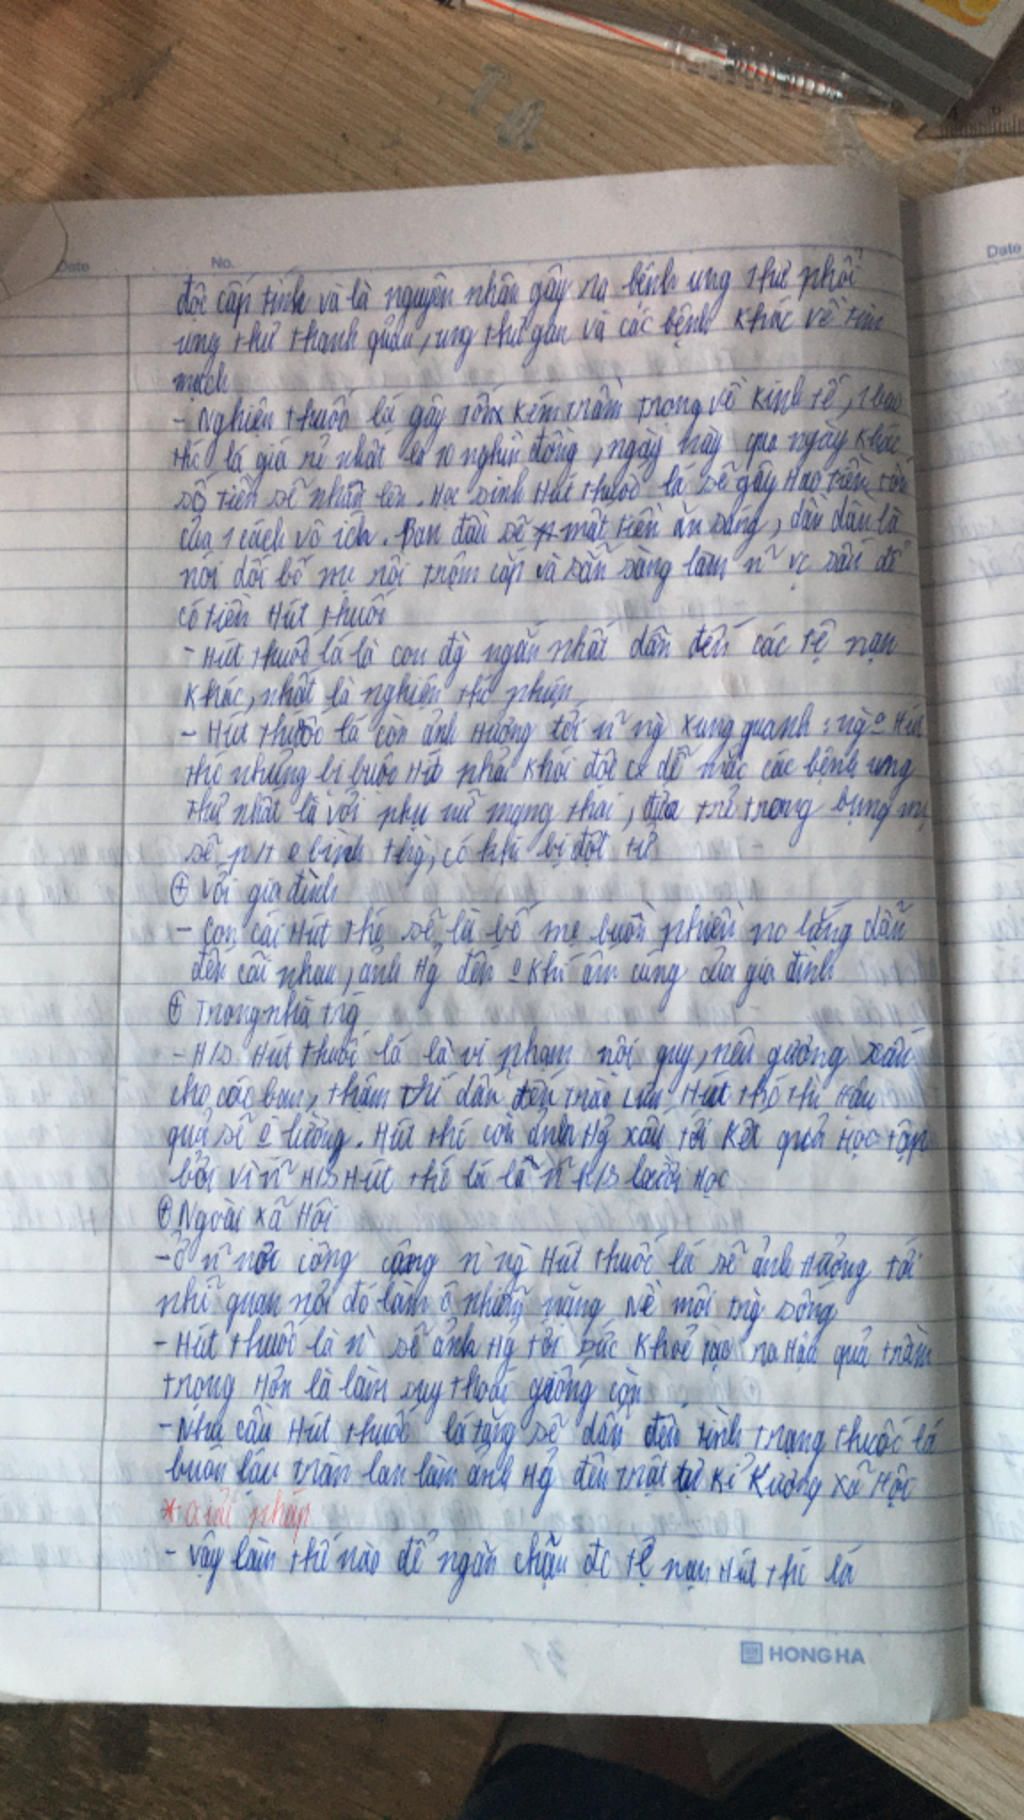 Date No.
Date
độc cấp tính và là nguyên nhân gây ra bệnh ung thư phổi
ung thư thanh quản, ung thư gan và các bệnh khác về tim
mạch
- Nghiện thuốc lá gây tốn kém trầm trọng về kinh tế, 1 bao
thc lá giá rẻ nhất là 10 nghìn đồng, ngày này qua ngày khác
số tiền sẽ nhân lên. Học sinh Hút thuốc lá sẽ gây Hao tiền tốn
của 1 cách vô ích. Ban đầu sẽ mất tiền ăn sáng, dần dần là
nói dối bố mẹ rồi trộm cắp và sẵn sàng làm n~ vc xấu để
có tiền Hút thuốc
- Hút thuốc lá là con đg ngắn nhất dẫn đến các tệ nạn
khác, nhất là nghiện thc phiện
- Hút thuốc lá còn ảnh Hưởng tới n~ ng xung quanh: ng o Hút
thc nhưng bị buộc Hít phải khói độc dễ mắc các bệnh ung
thư nhất là với phụ nữ mang thai, đứa trẻ trong bụng mẹ
sẽ p/t o bình thg, có khi bị đột tử
⊕ Với gia đình
- Con cái Hút thc sẽ là bố mẹ buồn phiền no lắng dẫn
đến cãi nhau, ảnh Hg đến o khí ấm cúng của gia đình
⊕ Trong nhà trg
- H/s Hút thuốc lá là vi phạm nội quy, nêu gương xấu
cho các bạn, thậm chí dẫn đến trào lưu Hút thc thì Hậu
quả sẽ o lường. Hút thc còn ảnh Hg xấu tới kết quả Học tập
bởi vì n~ H/s Hút thc lá là n~ H/s lười Học
⊕ Ngoài xã Hội
- Ở n~ nơi công cộng n~ ng Hút thuốc lá sẽ ảnh Hưởng tới
quan nơi đó làm ô nhiễm nặng nề môi trg sống
- Hút thuốc lá sẽ ảnh Hg tới sức khoẻ tạo ra Hậu quả trầm
trọng Hơn là làm suy thoái giống
- Nhu cầu Hút thuốc lá tăng sẽ dẫn đến tình trạng thuốc lá
buôn lậu tràn lan làm ảnh Hg đến trật tự kỉ Xã Hội
* Giải pháp
- Vậy làm thế nào để ngăn chặn đc tệ nạn Hút thc lá
HONG HA